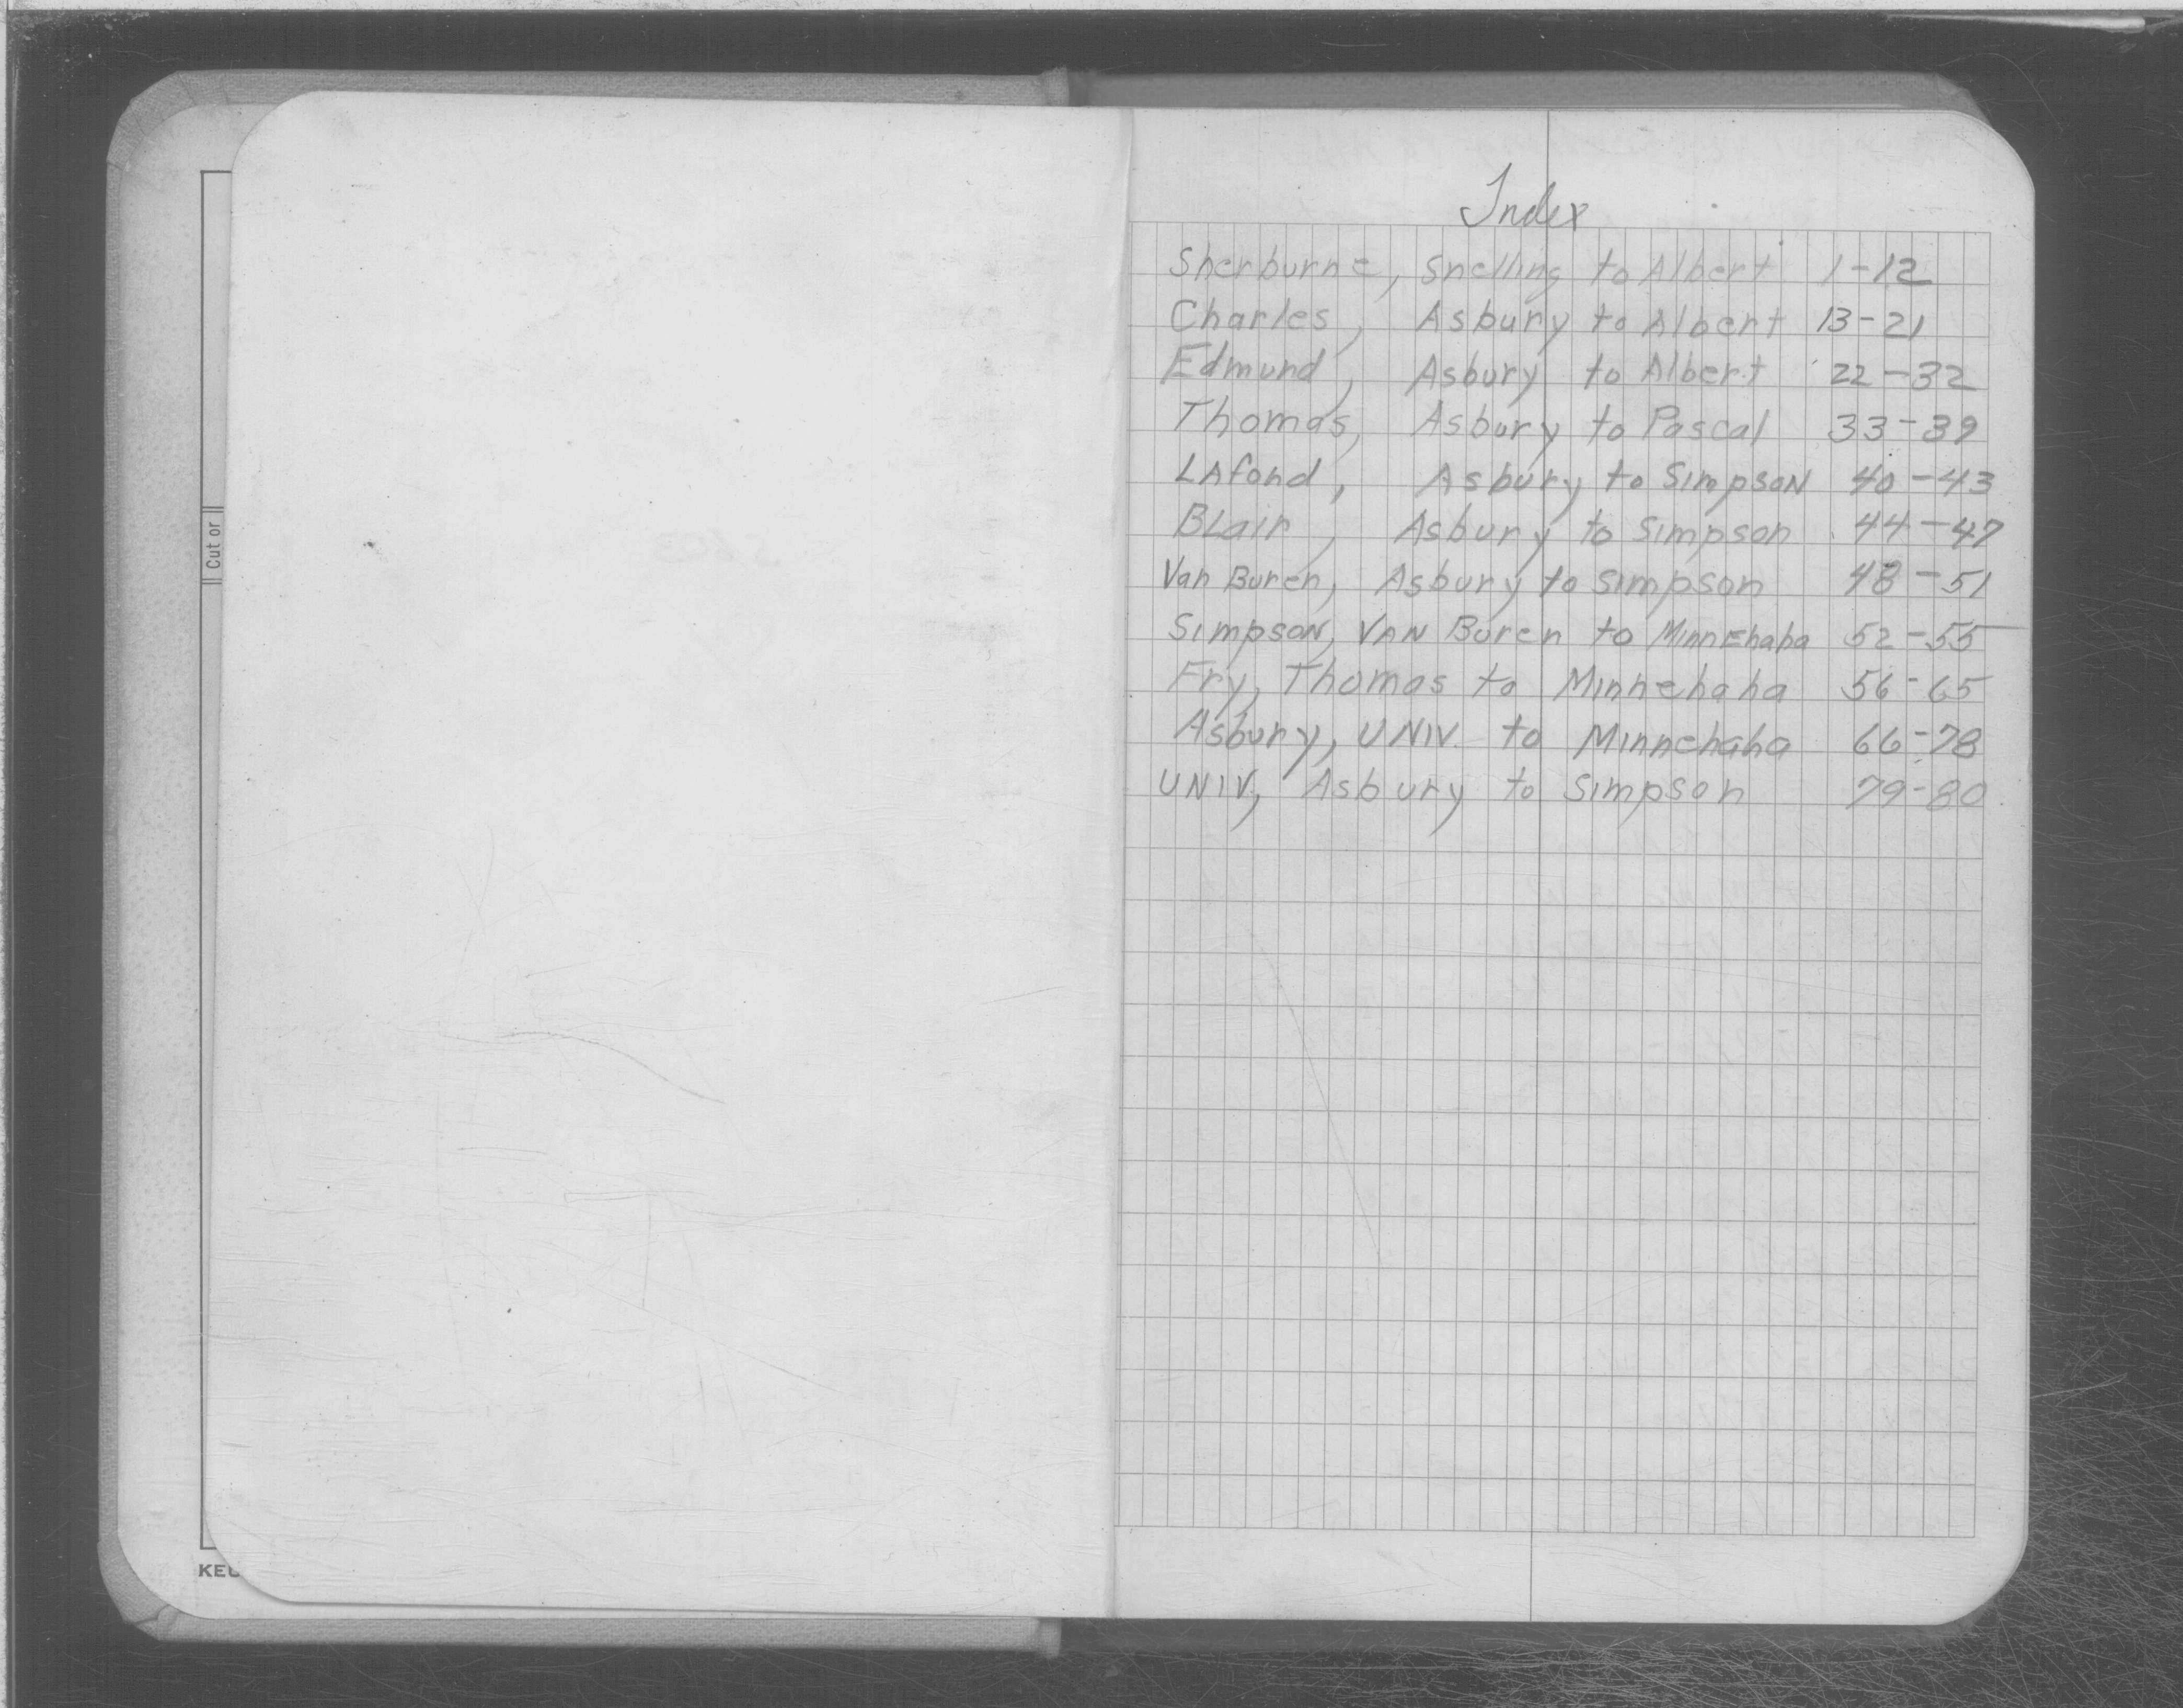 Index
Sherburne, Snelling to Albert 1-12
Charles, Asbury to Albert 13-21
Edmund, Asbury to Albert 22-32
Thomas, Asbury to Pascal 33-39
LAfond, Asbury to SimpsoN 40-43
BLair, Asbury to Simpson 44-47
Van Buren, Asbury to simpson 48-51
SimpsoN, VAN Buren to MinnEhaha 52-55
Fry, Thomas to Minnehaha 56-65
Asbury, UNIV. to Minnehaha 66-78
UNIV., Asbury to Simpson 79-80
Cut or